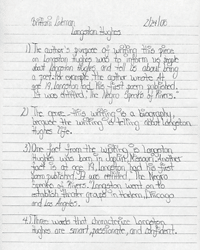 Brittani Coleman 2/24/00
Langston Hughes
1) The author's purpose of writing this piece
on Langston Hughes was to inform us people
about Langston Hughes and tell us about being
a poet. For example the author wrote: At
age 19, Langston had his first poem published.
It was entitled, The Negro Speaks of Rivers.
2) The genre this writing is a Biography,
because the writing is telling about Langston
Hughes life.
3) One fact from the writing is Langston
Hughes was born in Joplin, Missouri. Another
fact is at age 19, Langston had his first
poem published. It was entitled, The Negro
Speaks of Rivers. Langston went on to
establish theater groups in Harlem, Chicago
and Los Angeles.
4) Three words that characterize Langston
Hughes are smart, passionate, and confident.